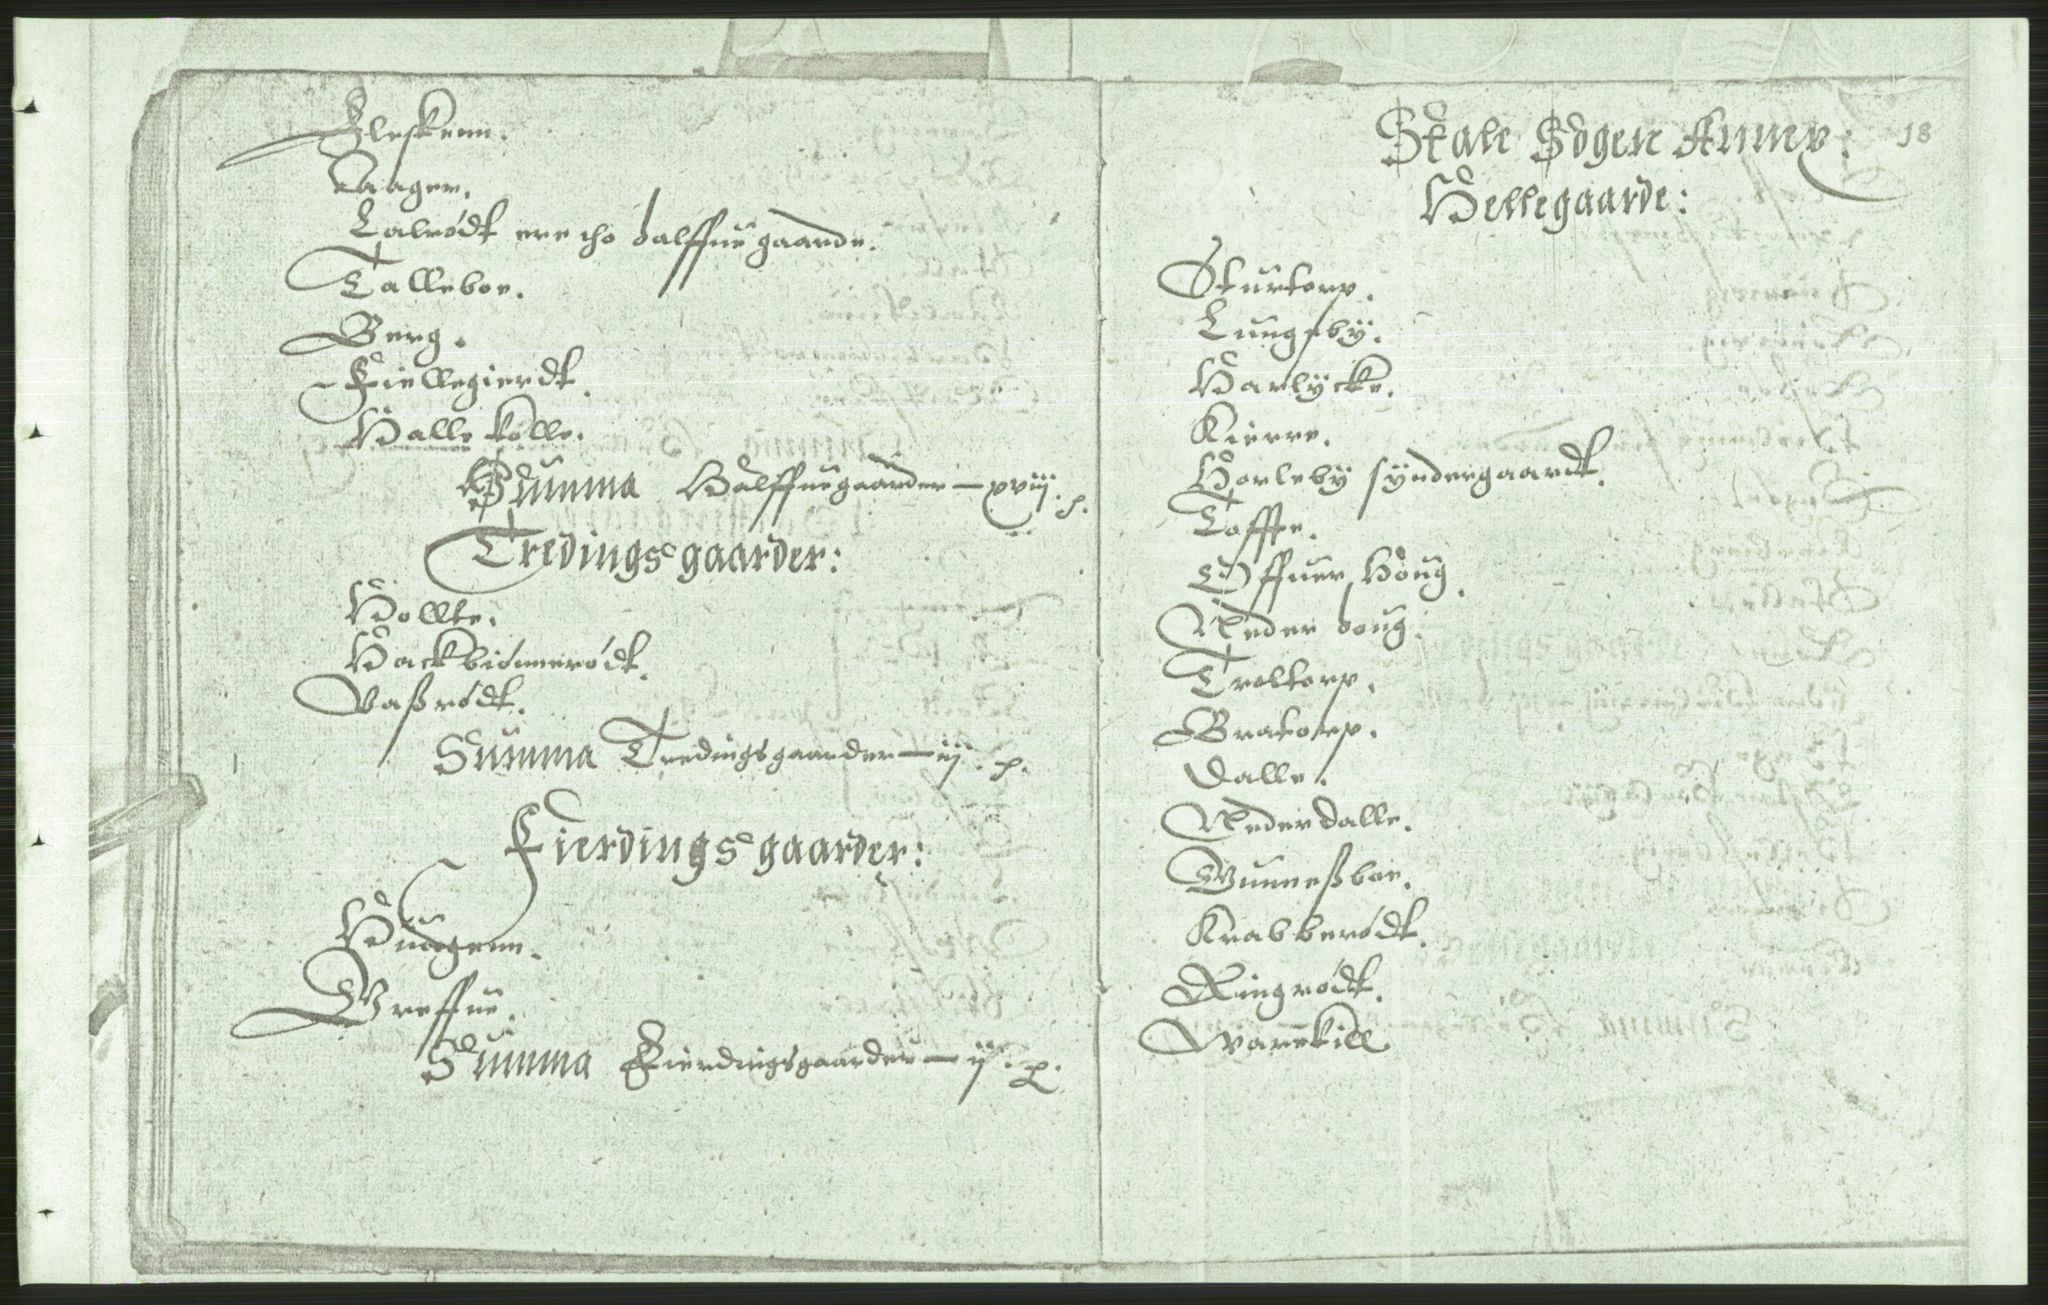 Fleskenn.
Aager.
Lalrødt ere tho halffue gaarde.
Talleboe.
Berg.
Fiellegierdt.
Halle kolle.
Summa Halffuegaarder — xviij. p.
Tredings gaarder:
Hollte.
Hackbiømerødt.
Vaßrødt.
Summa Tredingsgaarder — iij. p.
Fierdings gaarder:
Haagenn.
Greffue.
Summa Fierdingsgaarder — ij. p.
Skale Sogen Annex: 18
Hellegaarde:
Sturtorp.
Lungeby.
Harlycke.
Kierre.
Horleby Syndergaardt.
Toffte.
Offuer Houg.
Neder houg.
Troltorp.
Bratorp.
Dalle.
Nederdalle.
Gunneßboe.
Krabberødt.
Ringrødt.
Warekill